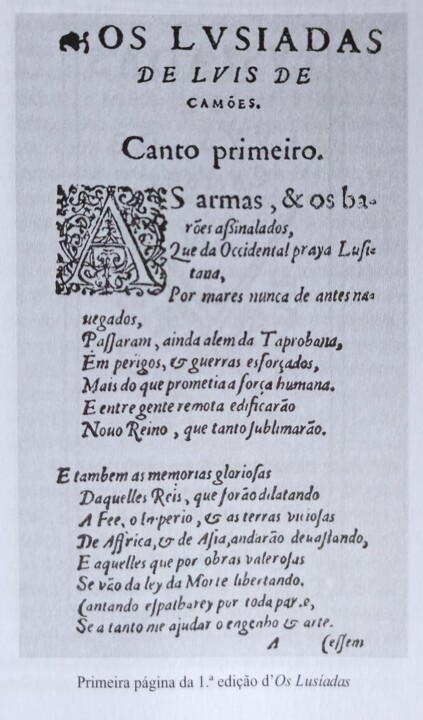 OS LVSIADAS
DE LVIS DE
CAMÕES.
Canto primeiro.
AS armas, & os ba-
rões aſsinalados,
Que da Occidental praya Luſi-
tana,
Por mares nunca de antes na-
uegados,
Paſſaram, ainda alem da Taprobana,
Em perigos, & guerras esforçados,
Mais do que prometia a força humana.
E entre gente remota edificarão
Nouo Reino, que tanto ſublimarão.
E tambem as memorias glorioſas
Daquelles Reis, que forão dilatando
A Fee, o Imperio, & as terras vicioſas
De Affrica, & de Aſia, andarão deuaſtando,
E aquelles que por obras valeroſas
Se vão da ley da Morte libertando.
Cantando eſpalharey por toda parte,
Se a tanto me ajudar o engenho & arte.
A Ceſſem
Primeira página da 1.ª edição d'Os Lusíadas